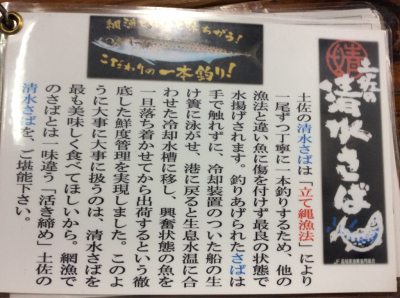 土佐の清水さば
網漁
ちがう!
こだわりの一本釣り!
土佐の清水さばは「立て縄漁法」により
一尾ずつ丁寧に一本釣りするため、他の
漁法と違い魚に傷を付けず最良の状態で
水揚げされます。釣りあげられたさばは
手で触れずに、冷却装置のついた船の生
け簀に泳がせ、港に戻ると生息水温に合
わせた冷却水槽に移し、興奮状態の魚を
一旦落ち着かせてから出荷するという徹
底した鮮度管理を実現しました。このよ
うに大事に大事に扱うのは、清水さばを
最も美味しく食べてほしいから。網漁で
のさばとは一味違う「活き締め」土佐の
清水さばを、ご堪能下さい。